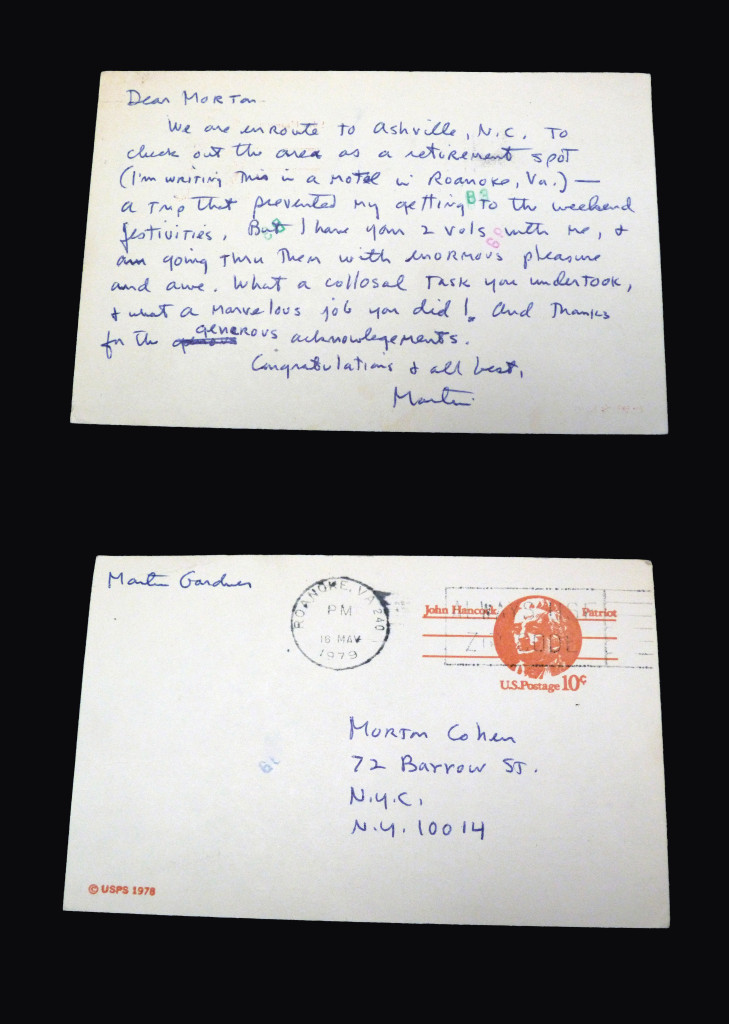 Dear Morton
We are enroute to Ashville, N.C. to
check out the area as a retirement spot
(I'm writing this in a motel in Roanoke, Va.) —
a trip that prevented my getting to the weekend
festivities. But I have your 2 vols with me, &
am going thru them with enormous pleasure
and awe. What a collosal task you undertook,
& what a marvelous job you did! And thanks
for the generous acknowlegements.
Congratulations & all best,
Martin
Martin Gardner
ROANOKE, VA 240
PM
16 MAY
1979
John Hancock
Patriot
ZIP CODE
U.S. Postage 10¢
Morton Cohen
72 Barrow St.
N.Y.C.
N.Y. 10014
© USPS 1978